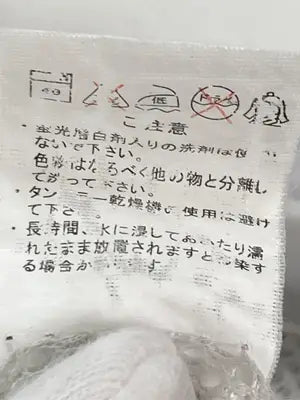 低
ドライ
ご注意
・蛍光増白剤入りの洗剤は使
ないで下さい。
色彩はなるべく他の物と分離し
て 下さい。
・タン ー乾燥機 使用は避け
て下さ 。
・長時間、水に浸しておいたり濡
れたまま放置されますと 染す
る場合が す